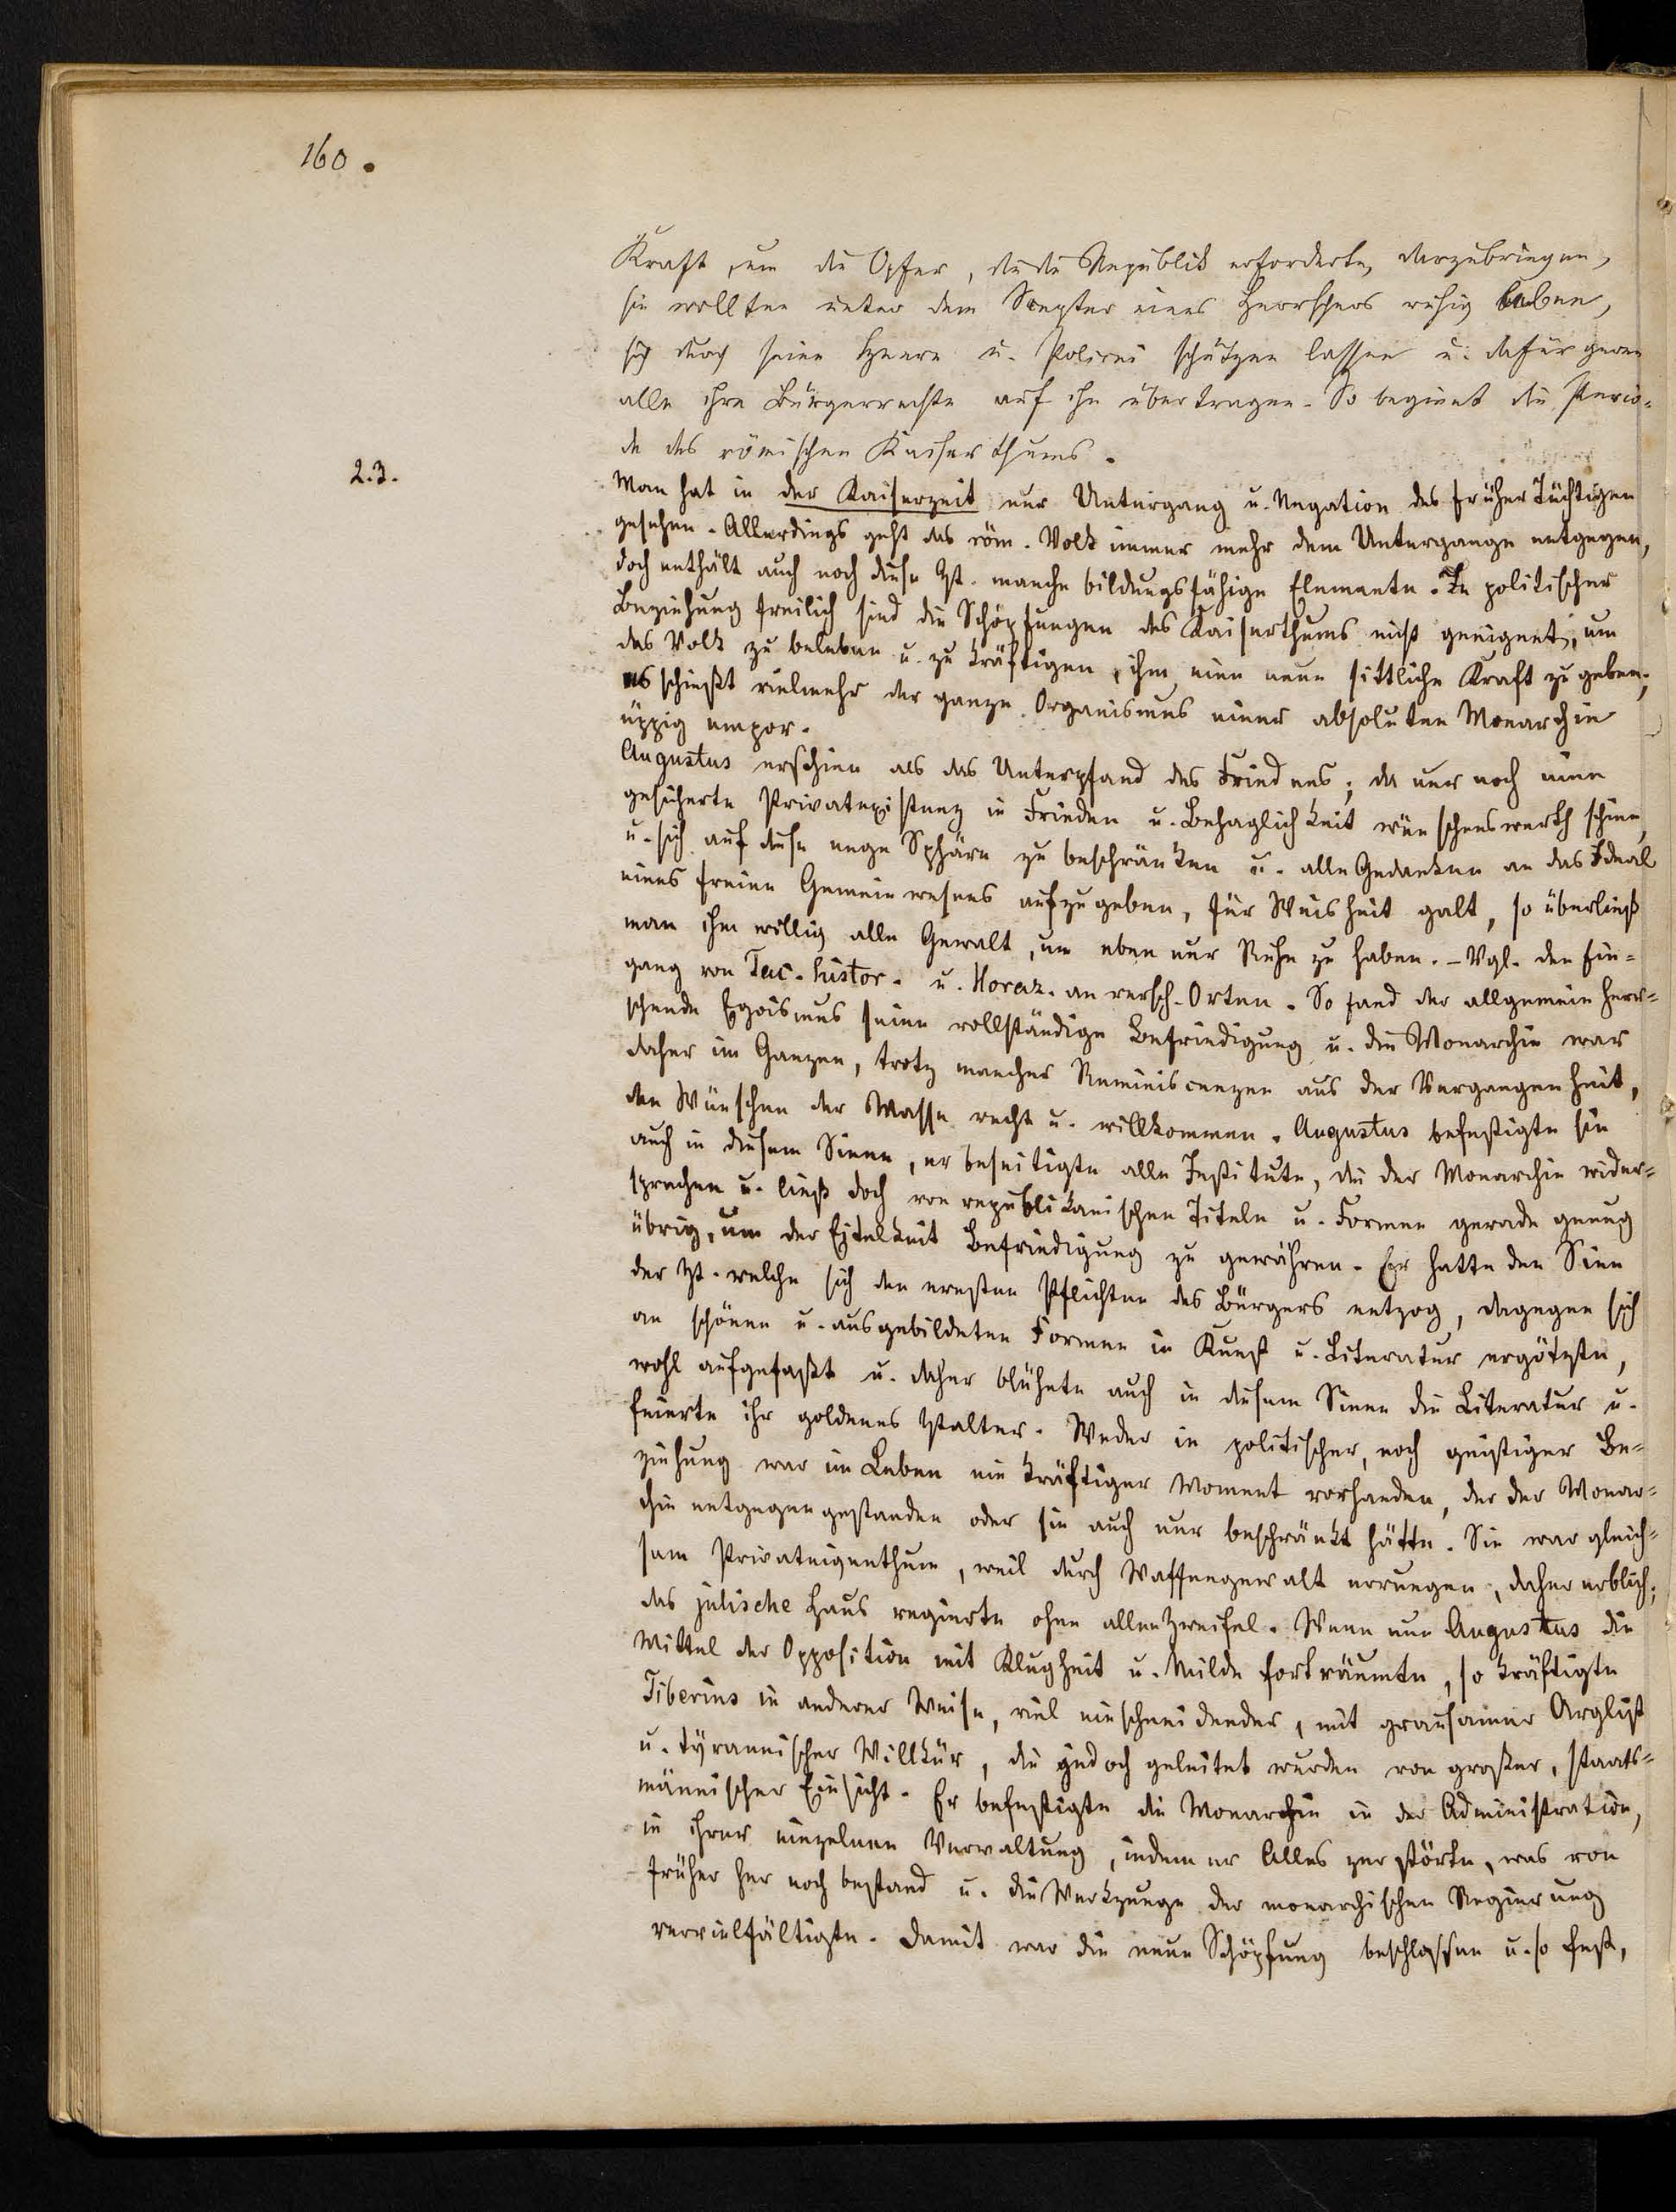 160.
Kraft, um die Opfer, die die Republik erforderte, darzubringen,
sie wollten unter dem Scepter eines Herrschers ruhig leben,
sich durch seine Heere u. Polizei schützen lassen u. dafür gern
alle ihre Bürgerrechte auf ihn übertragen. So beginnt die Perio-
de des römischen Kaiserthums.
2.3.
Man hat in der Kaiserzeit nur Untergang u. Negation des früher Tüchtigen
gesehen. Allerdings geht das röm. Volk immer mehr dem Untergange entgegen,
doch enthält auch noch diese Zt. manche bildungsfähige Elemente. In politischer
Beziehung freilich sind die Schöpfungen des Kaiserthums nicht geeignet, um
das Volk zu beleben u. zu kräftigen, ihm eine neue sittliche Kraft zu geben;
es schießt vielmehr der ganze Organismus einer absoluten Monarchie
üppig empor.
Augustus erschien als das Unterpfand des Friedens; da nur noch eine
gesicherte Privatexistenz in Frieden u. Behaglichkeit wünschenswerth schien,
u. sich auf diese enge Sphäre zu beschränken u. alle Gedanken an das Ideal
eines freien Gemeinwesens aufzugeben, für Weisheit galt, so überließ
man ihm willig alle Gewalt, um eben nur Ruhe zu haben. – Vgl. den Ein-
gang von Tac. histor. u. Horaz. an versch. Orten. So fand der allgemein herr-
schende Egoismus seine vollständige Befriedigung u. die Monarchie war
daher im Ganzen, trotz mancher Reminiscenzen aus der Vergangenheit,
den Wünschen der Masse recht u. willkommen. Augustus befestigte sie
auch in diesem Sinne, er beseitigte alle Institute, die der Monarchie wider-
sprachen u. ließ doch von republikanischen Titeln u. Formen gerade genug
übrig, um der Eitelkeit Befriedigung zu gewähren. Er hatte den Sinn
der Zt. welche sich den ernsten Pflichten des Bürgers entzog, dagegen sich
an schönen u. ausgebildeten Formen in Kunst u. Literatur ergötzte,
wohl aufgefaßt u. daher blühete auch in diesem Sinne die Literatur u.
feierte ihr goldenes Ztalter. Weder in politischer, noch geistiger Be-
ziehung war im Leben ein kräftiger Moment vorhanden, der der Monar-
chie entgegengestanden oder sie auch nur beschränkt hätte. Sie war gleich-
sam Privateigenthum, weil durch Waffengewalt errungen, daher erblich;
das julische Haus regierte ohne allen Zweifel. Wenn nun Augustus die
Mittel der Opposition mit Klugheit u. Milde forträumte, so kräftigte
Tiberius in anderer Weise, viel einschneidender, mit grausamer Arglist
u. tyrannischer Willkür, die jedoch geleitet wurden von großer, staats-
männischer Einsicht. Er befestigte die Monarchie in der Administration,
in ihrer einzelnen Verwaltung, indem er Alles zerstörte, was von
früher her noch bestand u. die Werkzeuge der monarchischen Regierung
vervielfältigte. Damit war die neue Schöpfung beschlossen u. so fest,